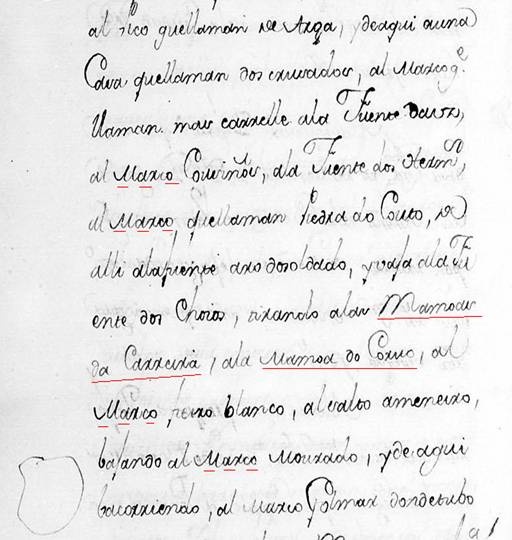 al Pico quellaman de Arga, ydeaqui auna
Cava quellaman dos cruuados, al Marco qe.
llaman. mas carrelle ala Fuente
al Marco Couiños, ala Fuente dos
al Marco quellaman Piedra do Couto, de
alli alapuente axo dosoldado, y ala Fu
ente dos Choios, tirando alas Mamoas
da Carreira, ala Mamoa do Coruo, al
Marco peixo blanco, al valto ameneiro,
bajando al Marco Mourado, ydeaqui
bacorriendo, al Marco Golmar dondetubo